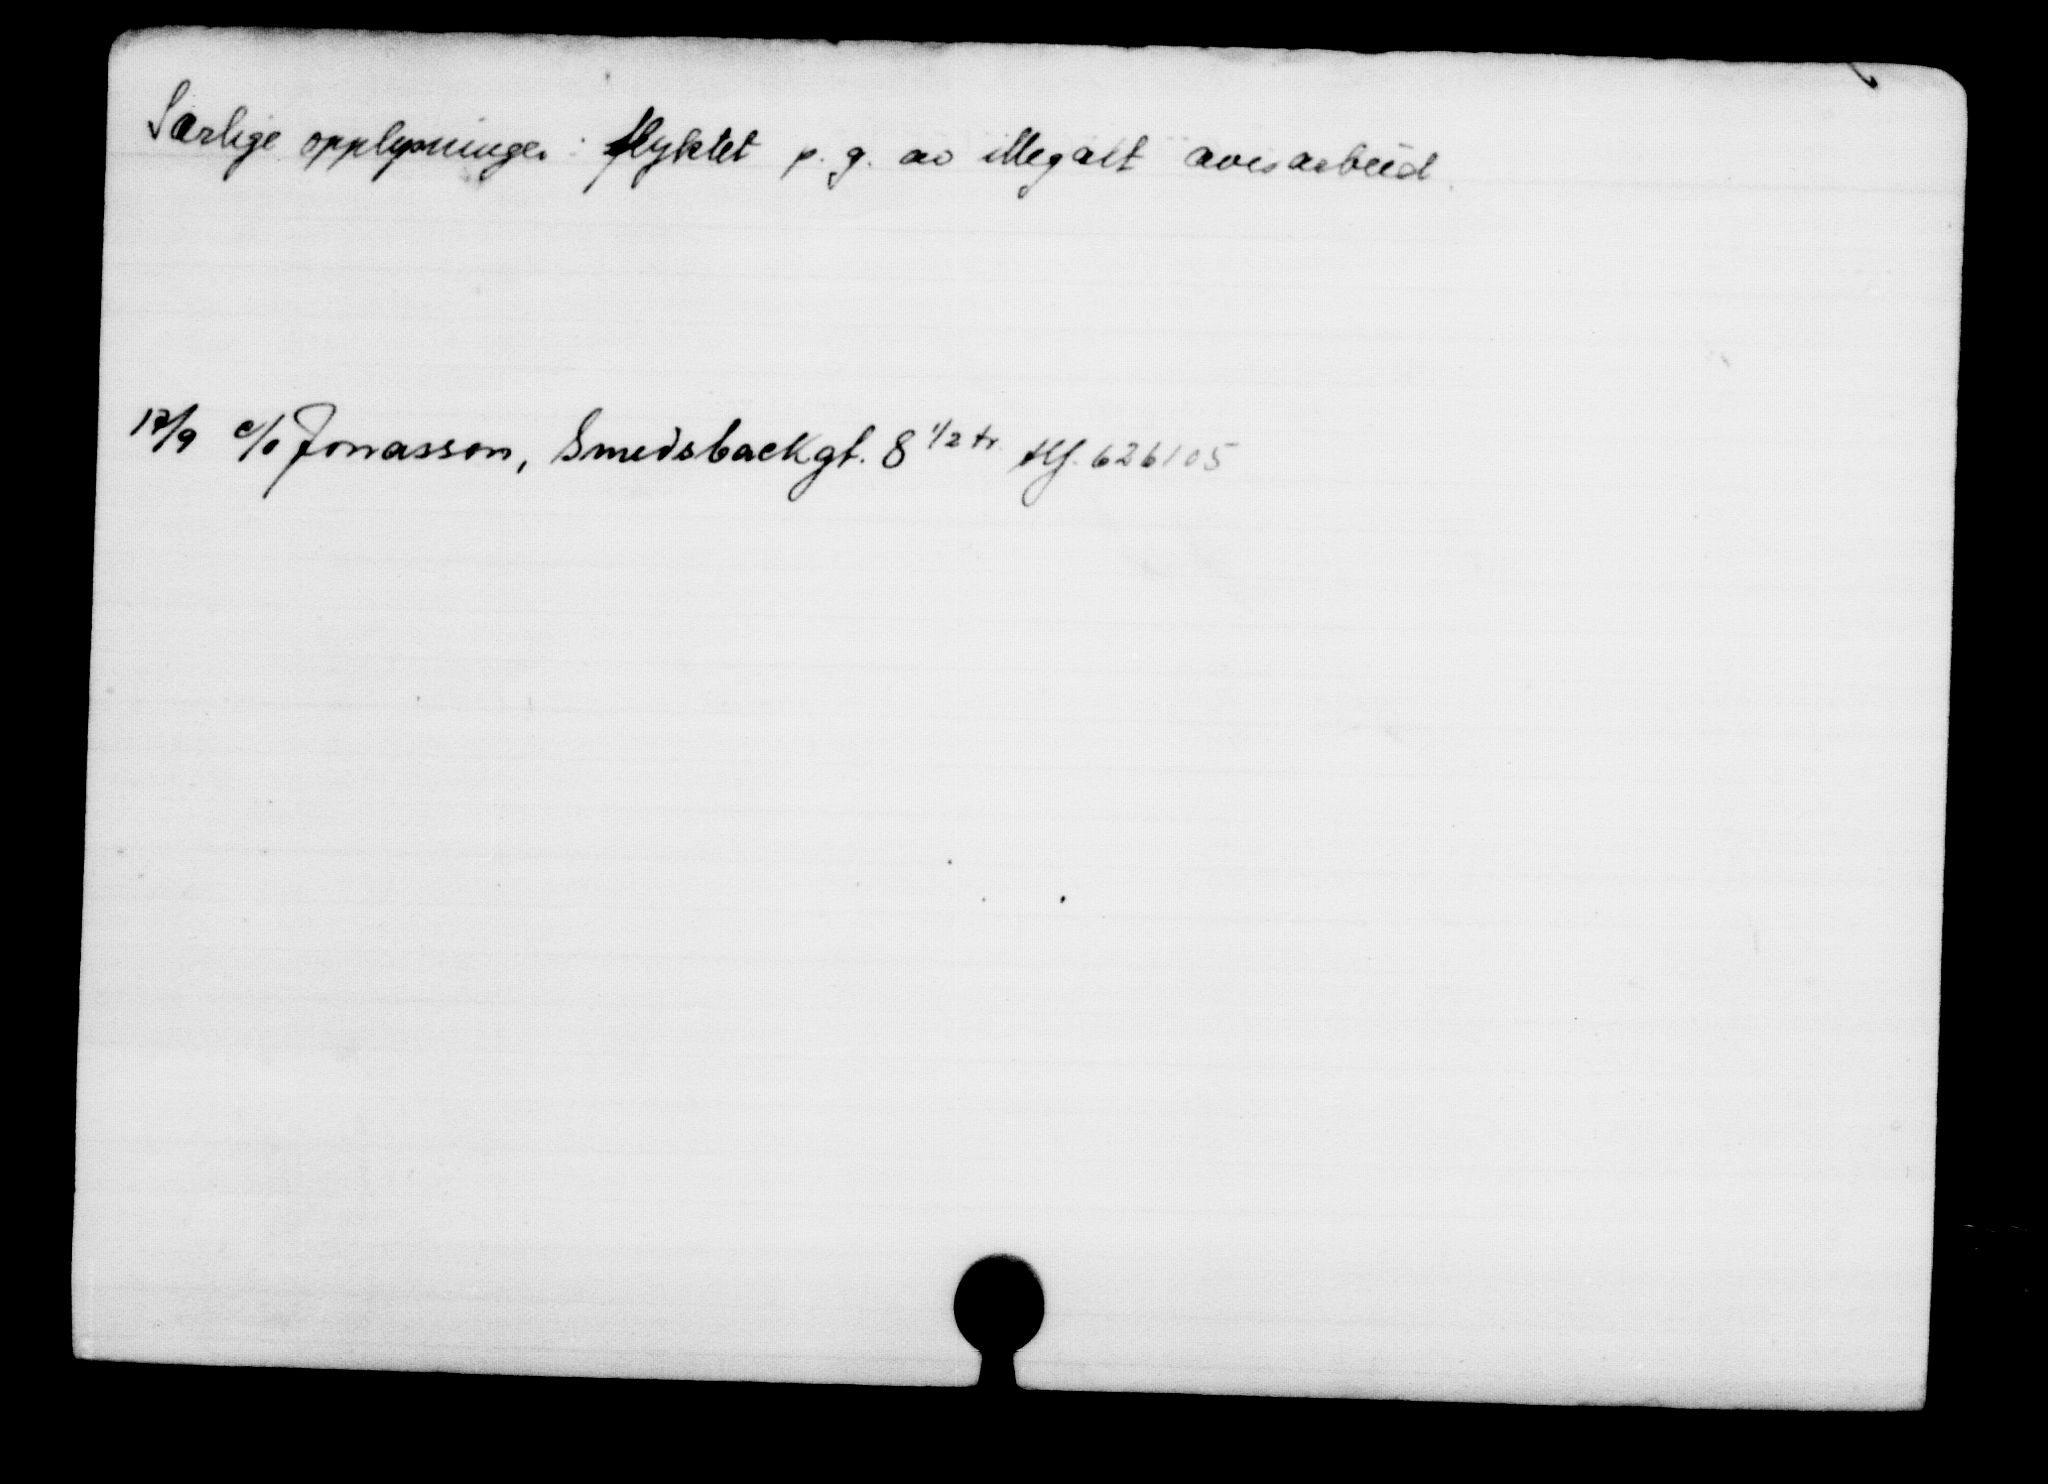 Særlige opplysninger: flyktet p. g. av illegalt avisarbeid.
17/9 c/o Jonasson, Smedsbackgt. 8 1/2 tr. tlf. 626105